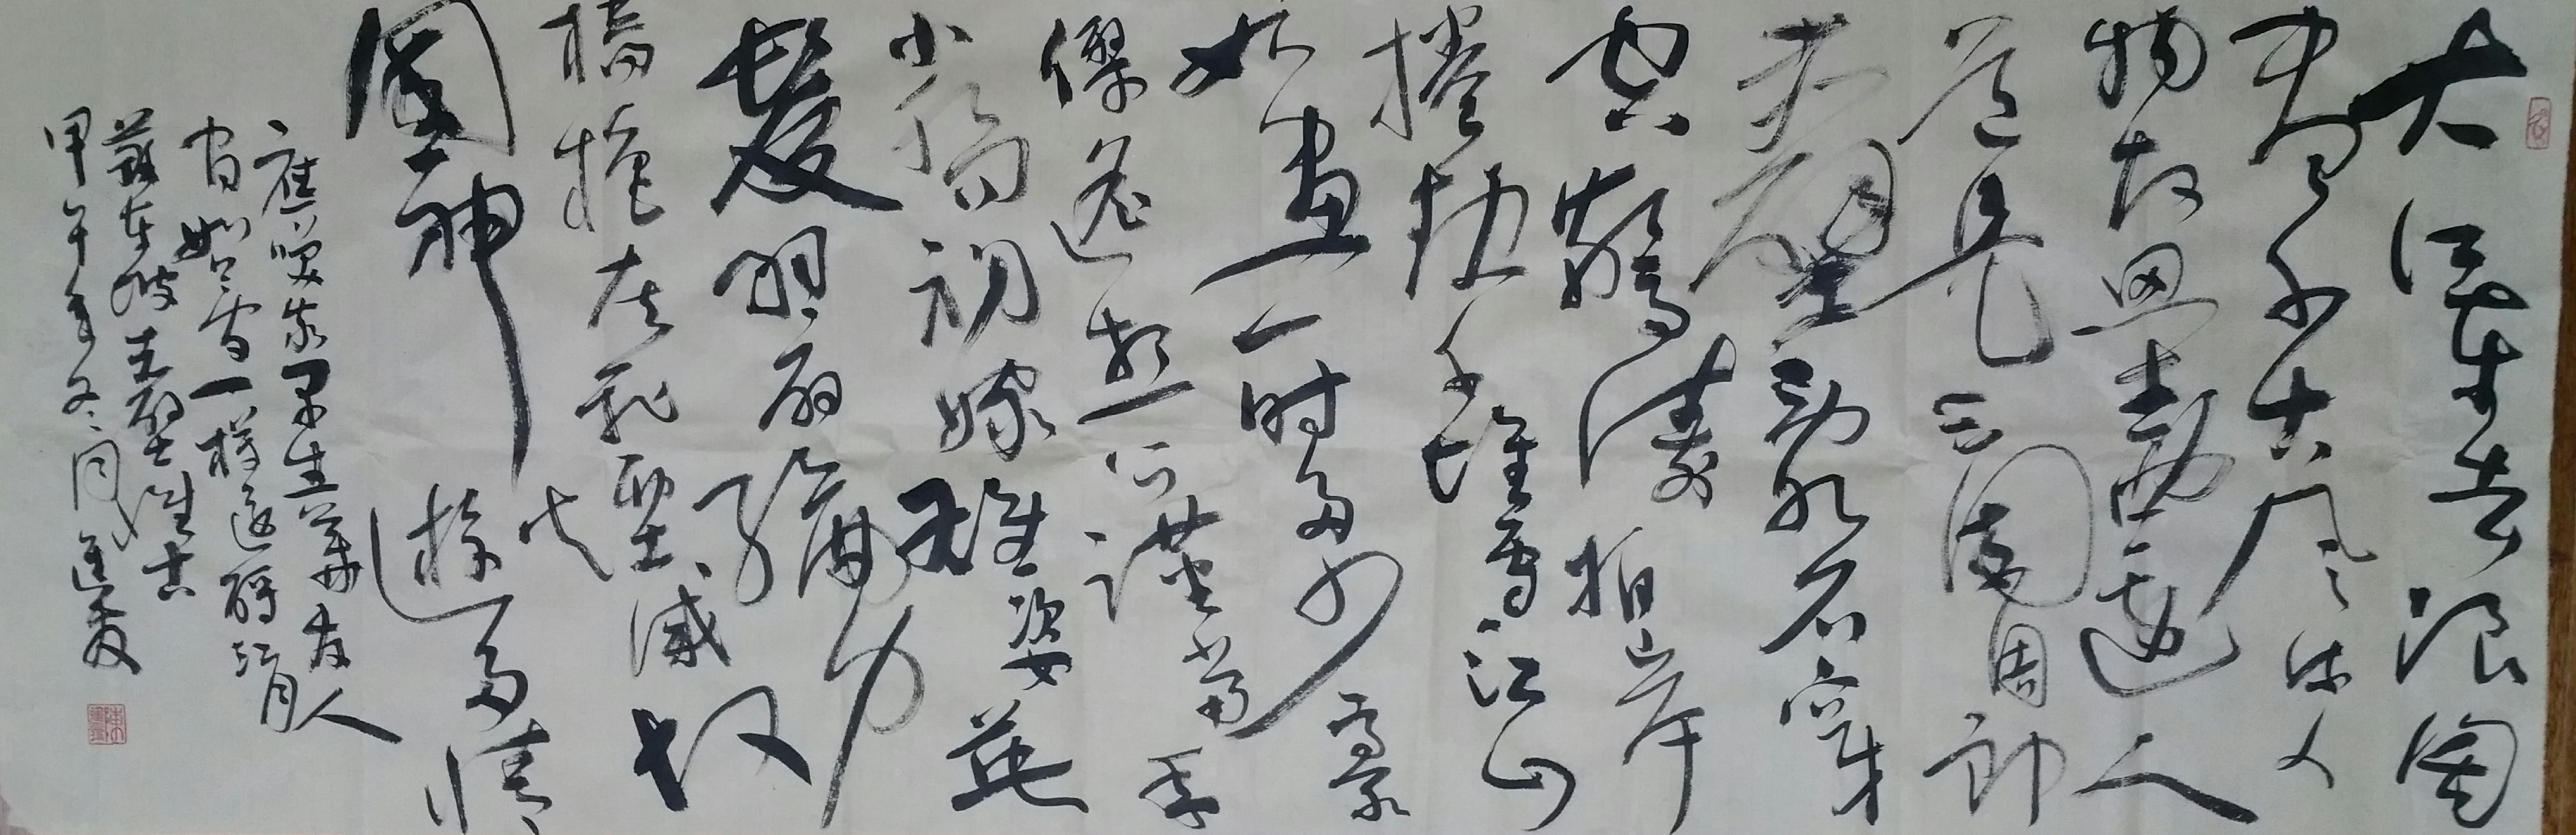 大江东去浪淘
尽千古风流人
物故垒西边人
道是三国周郎
赤壁乱石穿
空惊涛拍岸
捲起千堆雪江山
如画一时多少豪
傑遥想公谨当年
小乔初嫁雄姿英
髮羽扇纶巾
樯橹灰飞煙滅故
國神遊多情
應笑我早生華发人
间如梦一樽還酹江月
蘇東坡赤壁怀古
甲午年冬月